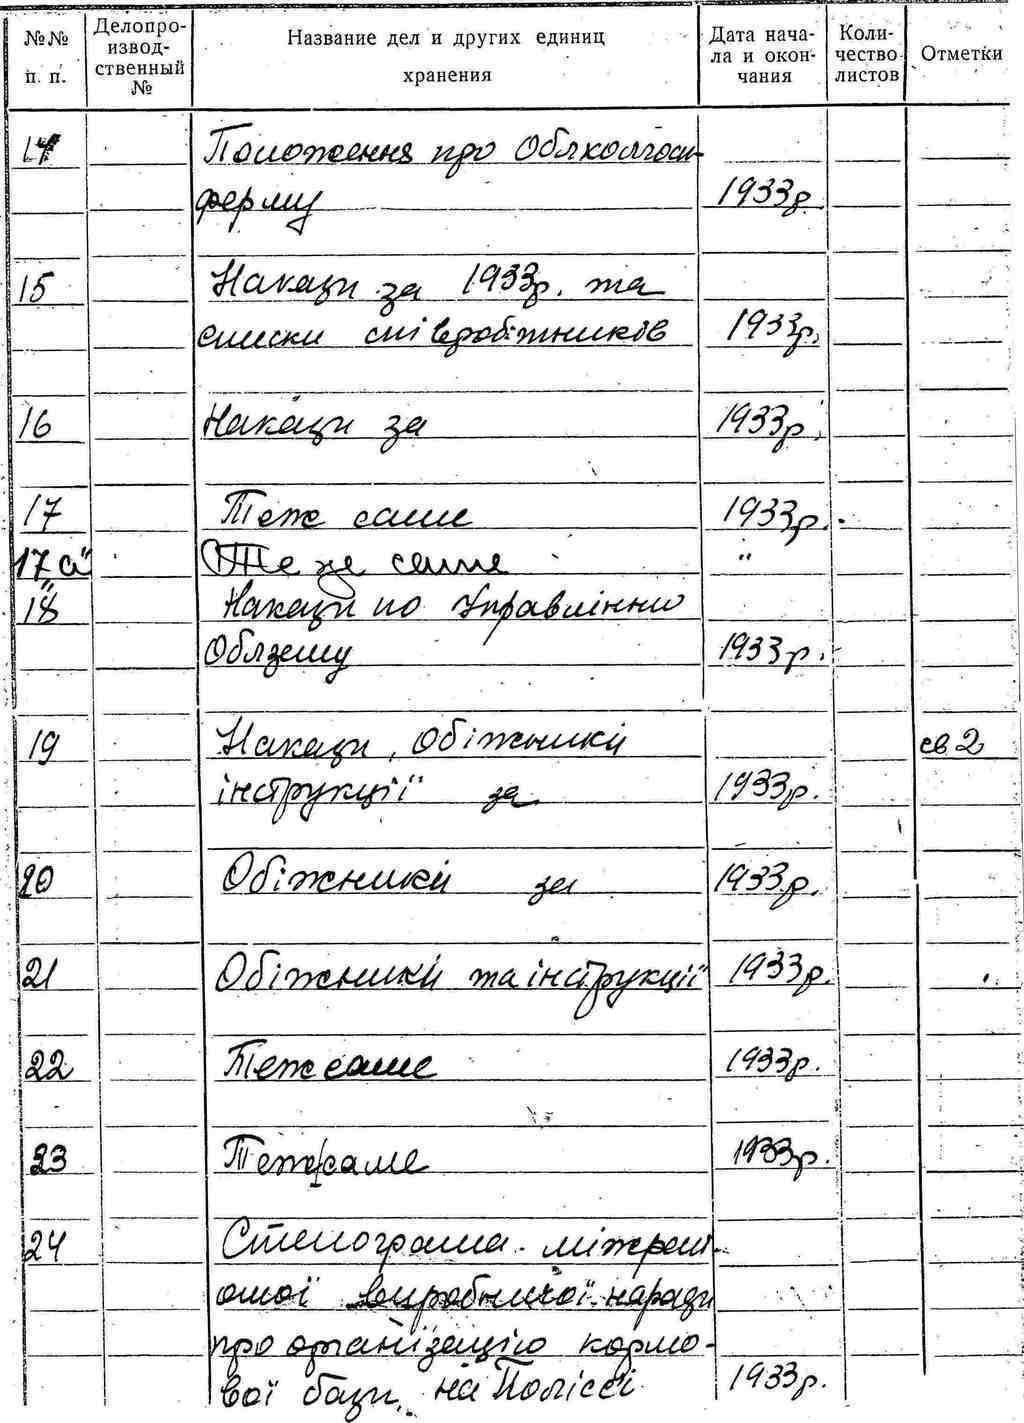 №№ п. п.
Делопроизвод-ственный №
Название дел и других единиц хранения
Дата нача-ла и окон-чания
Коли-чество листов
Отметки
14 Положення про Облколгосп-
ферму 1933р.
15 Накази за 1933р. та
списки співробітників 1933р.
16 Накази за 1933р.
17 Теж саме 1933р.
17"а" Те же саме "
18 Накази по Управлінню
Облзему 1933р.
19 Накази, Обіжники св 2
інструкції за 1933р.
20 Обіжники за 1933.р.
21 Обіжники та інструкції 1933р.
22 Теж саме 1933р.
23 Теж саме 1933р.
24 Стенограма міжрай-
оної виробничої наради
про організацію кормо-
вої бази на Поліссі 1933р.